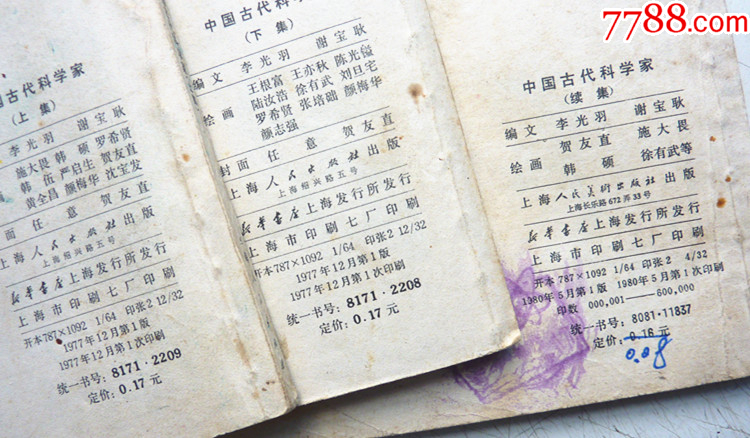 7788.com
国古代科学家
(上集)
李光羽 谢宝耿
施大畏 韩硕 罗希贤
韩伍 严启生 贺友直
黄全昌 颜梅华 沈宝发
面 任意 贺友直
上海人民出版社出版
上海绍兴路五号
新华书店上海发行所发行
上海市印刷七厂印刷
开本787×1092 1/64 印张2 12/32
1977年12月第1版
1977年12月第1次印刷
统一书号:8171·2209
定价:0.17元
中国古代科学家
(下集)
编文 李光羽 谢宝耿
王根富 王亦秋 陈光镒
绘画 陆汝浩 徐有武 刘旦宅
罗希贤 张培础 颜梅华
颜志强
封面 任意 贺友直
上海人民出版社出版
上海绍兴路五号
新华书店上海发行所发行
上海市印刷七厂印刷
开本787×1092 1/64 印张2 12/32
1977年12月第1版
1977年12月第1次印刷
统一书号:8171·2208
定价:0.17元
中国古代科学家
(续集)
编文 李光羽 谢宝耿
绘画 贺友直 施大畏
韩硕 徐有武等
上海人民美術出版社出版
上海长乐路672弄33号
新华书店上海发行所发行
上海市印刷七厂印刷
开本787×1092 1/64 印张2 4/32
1980年5月第1版 1980年5月第1次印刷
印数 000,001—600,000
统一书号:8081·11837
定价:0.16元
0.08